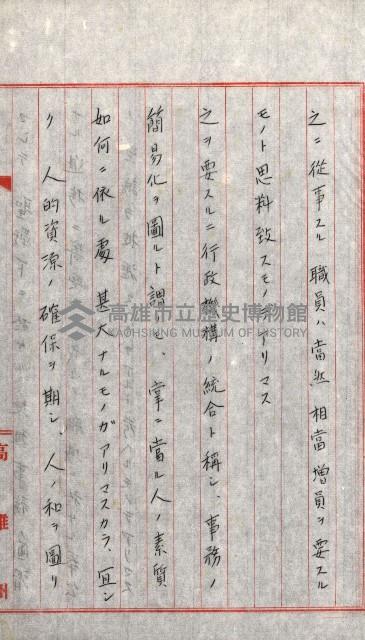 之ニ從事スル職員ハ當然相當増員ヲ要スル
モノト思料致スモノデアリマス
之ヲ要スルニ行政機構ノ統合ト稱シ、事務ノ
簡易化ヲ圖ルト謂ヒ、掌ニ當ル人ノ素質
如何ニ依ル處甚大ナルモノガアリマスカラ、宜シ
ク人的資源ノ確保ヲ期シ、人ノ和ヲ圖リ
高雄州
高雄市立歷史博物館
KAOHSIUNG MUSEUM OF HISTORY